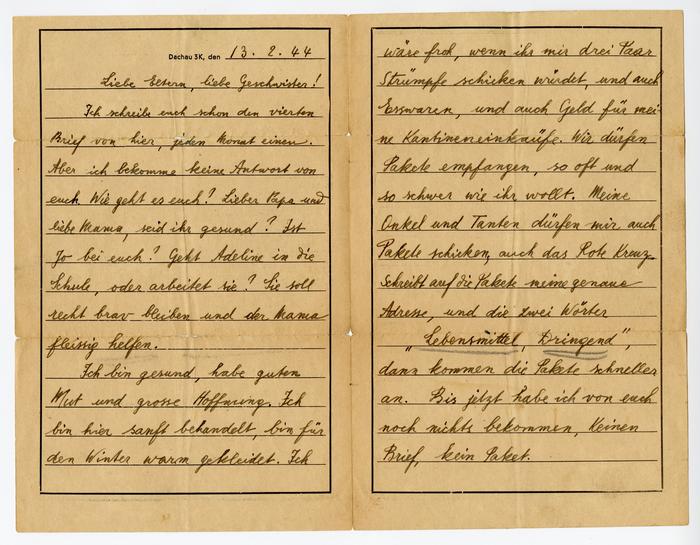 Dachau 3K, den 13. 2. 44
Liebe Eltern, liebe Geschwister!
Ich schreibe euch schon den vierten
Brief von hier, jeden Monat einen.
Aber ich bekomme keine Antwort von
euch. Wie geht es euch? Lieber Papa und
liebe Mama, seid ihr gesund? Ist
Jo bei euch? Geht Adeline in die
Schule, oder arbeitet sie? Sie soll
recht brav bleiben und der Mama
fleissig helfen.
Ich bin gesund, habe guten
Mut und grosse Hoffnung. Ich
bin hier sanft behandelt, bin für
den Winter warm gekleidet. Ich
wäre froh, wenn ihr mir drei Paar
Strümpfe schicken würdet, und auch
Esswaren, und auch Geld für mei-
ne Kantineneinkäufe. Wir dürfen
Pakete empfangen, so oft und
so schwer wie ihr wollt. Meine
Onkel und Tanten dürfen mir auch
Pakete schicken, auch das Rote Kreuz.
Schreibt auf die Pakete meine genaue
Adresse, und die zwei Wörter
"Lebensmittel, Dringend",
dann kommen die Pakete schneller
an. Bis jetzt habe ich von euch
noch nichts bekommen, keinen
Brief, kein Paket.